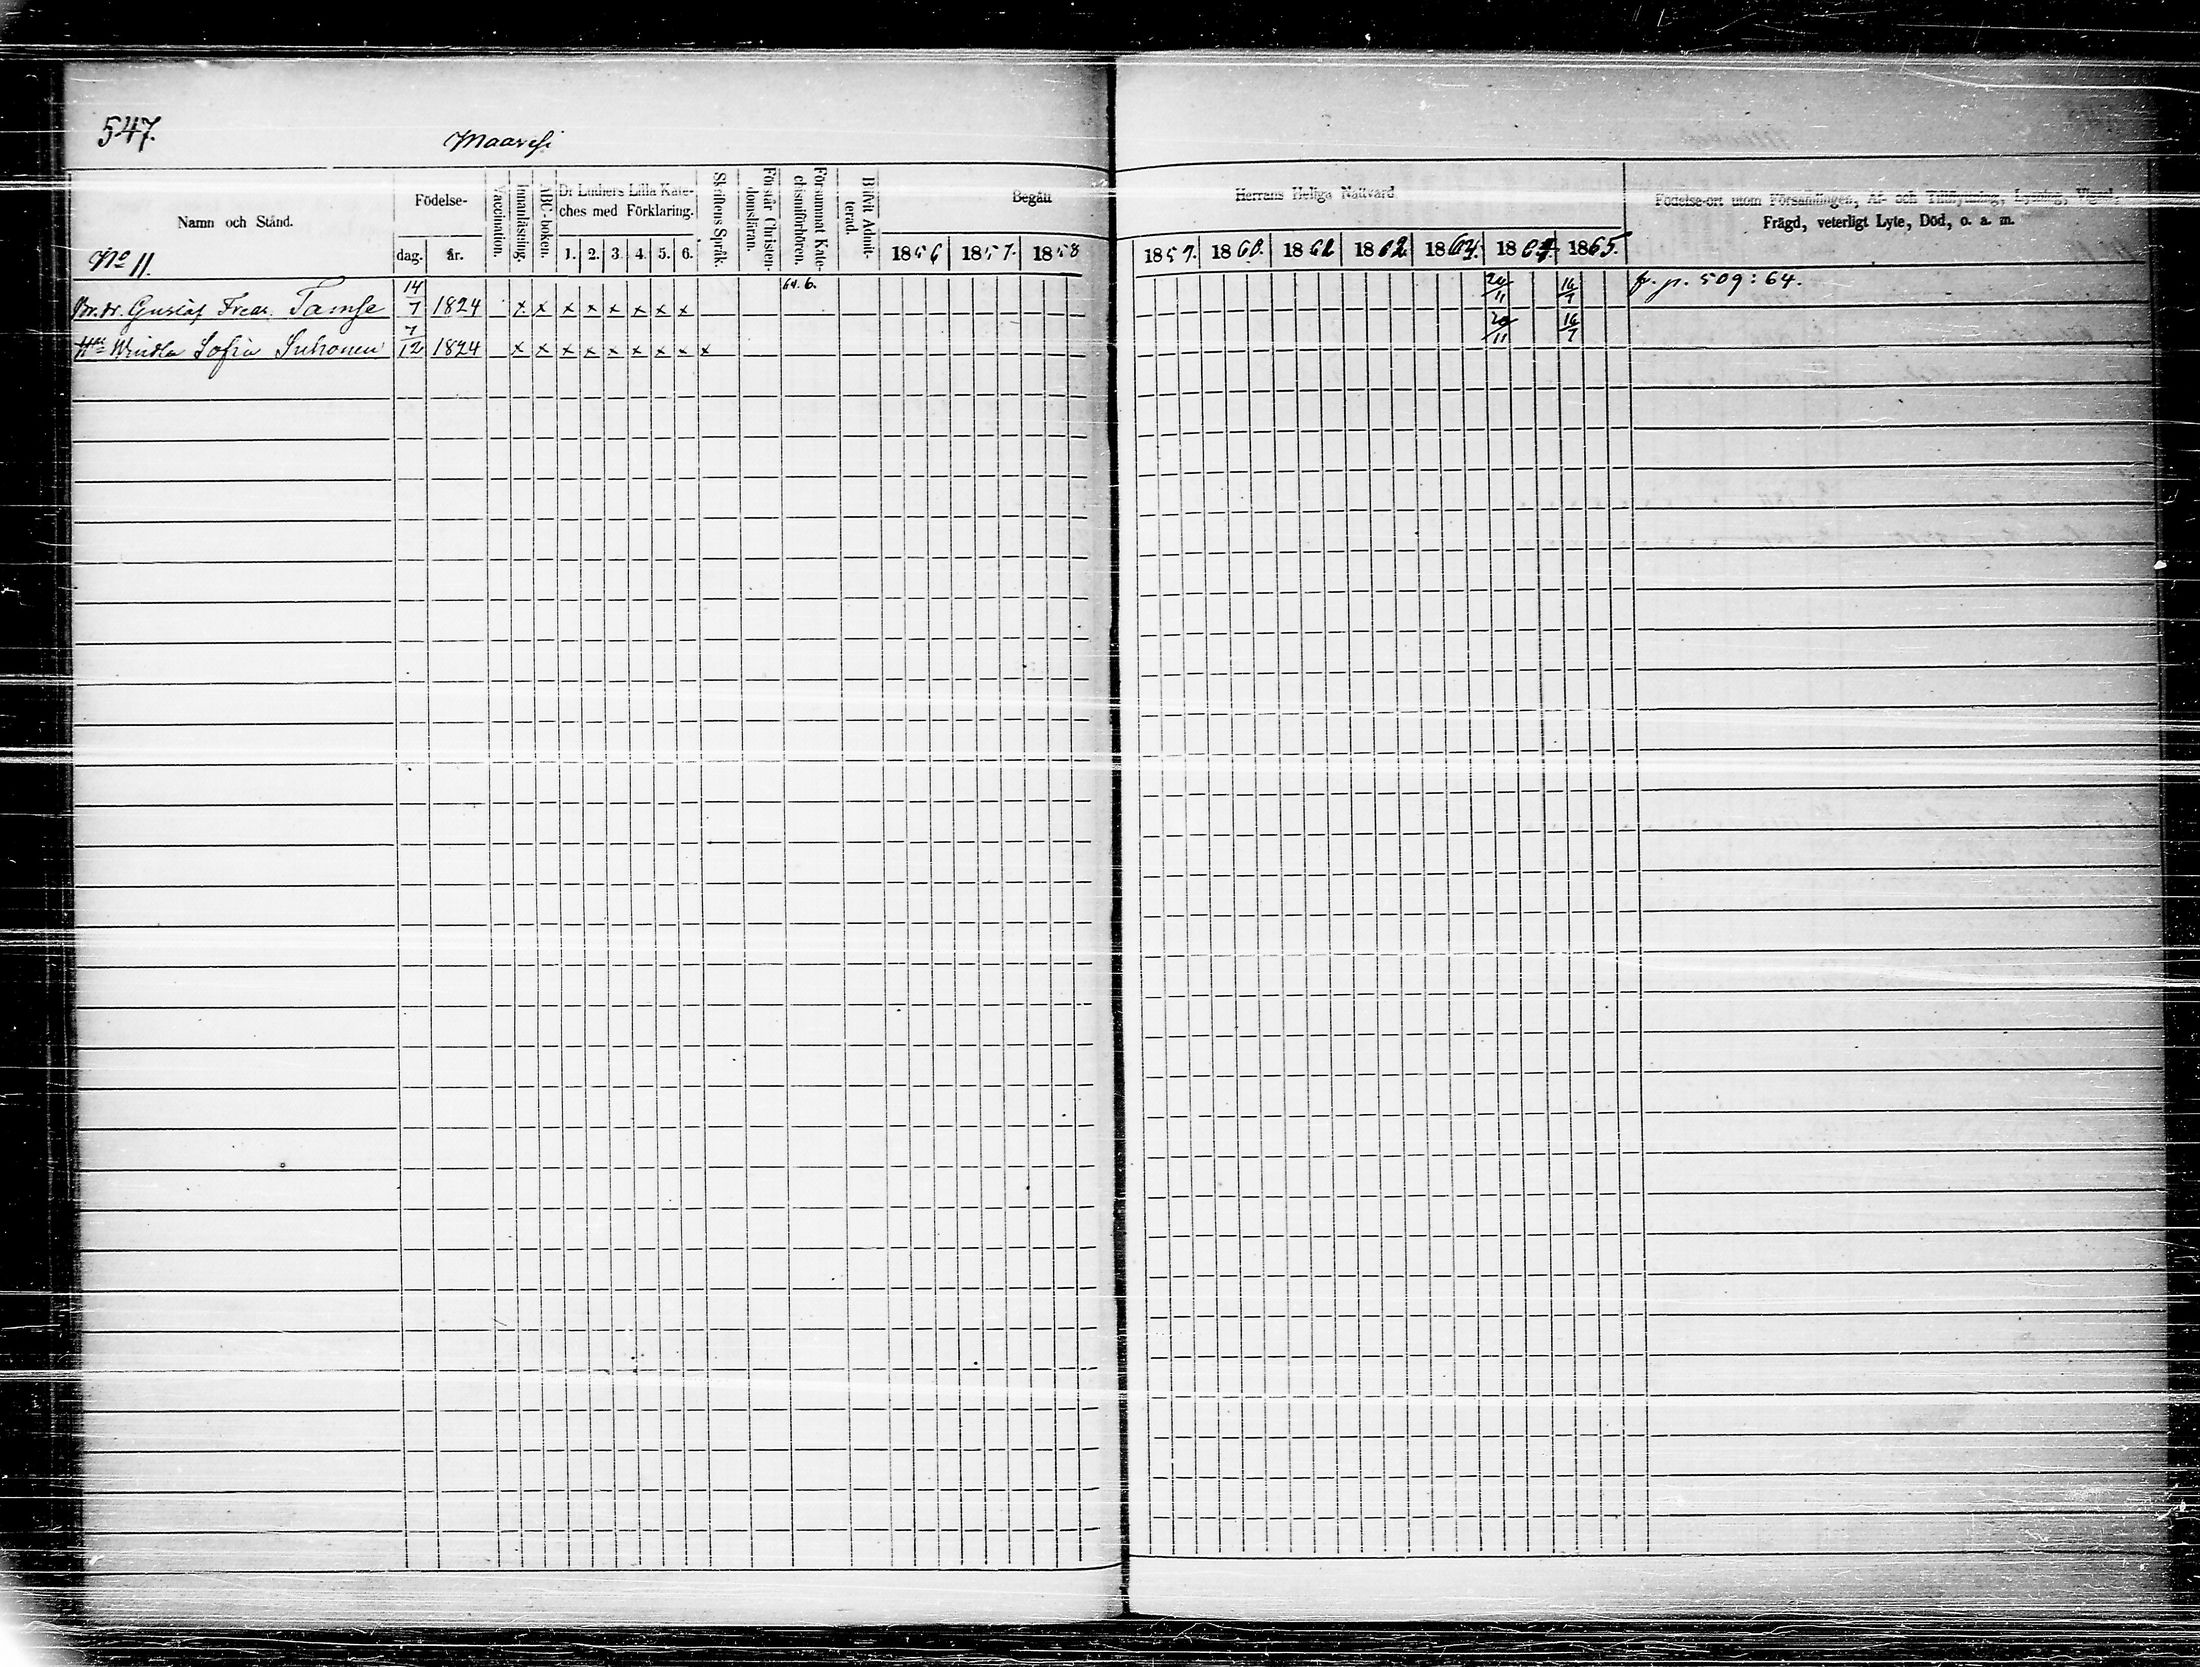 547.
Maaresi
Namn och Stånd.
No 11.
Födelse-
dag. år.
Vaccination.
Innanläsning.
ABC-boken.
Dr Luthers Lilla Kate-
ches med Förklaring.
1. 2. 3. 4. 5. 6.
Skriftens Språk.
Förstår Christen-
domsläran.
Försummat Kate-
chismiförhören.
Blifvit Admit-
terad.
Begått
1856 1857. 1858
Herrans Heliga Nattvard
1859. 1860. 1861 1862. 1864. 1865.
Födelse-ort utom Församlingen, Af- och Tillflyttning, Lysning, Vigsel,
Frägd, veterligt Lyte, Död, o. a. m.
Gustaf Fredr. 14/7 1824 x x x x x x x x 64. 6. 20/11 16/7 fr. p. 509: 64.
Sofia Suhonen 7/12 1824 x x x x x x x x x 20/11 16/7